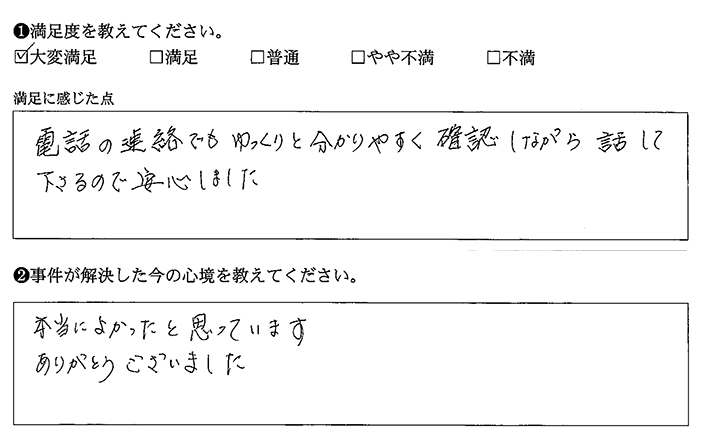 ❶満足度を教えてください。
☑大変満足 □満足 □普通 □やや不満 □不満
満足に感じた点
電話の連絡でもゆっくりと分かりやすく確認しながら話して
下さるので安心しました
❷事件が解決した今の心境を教えてください。
本当によかったと思っています
ありがとうございました